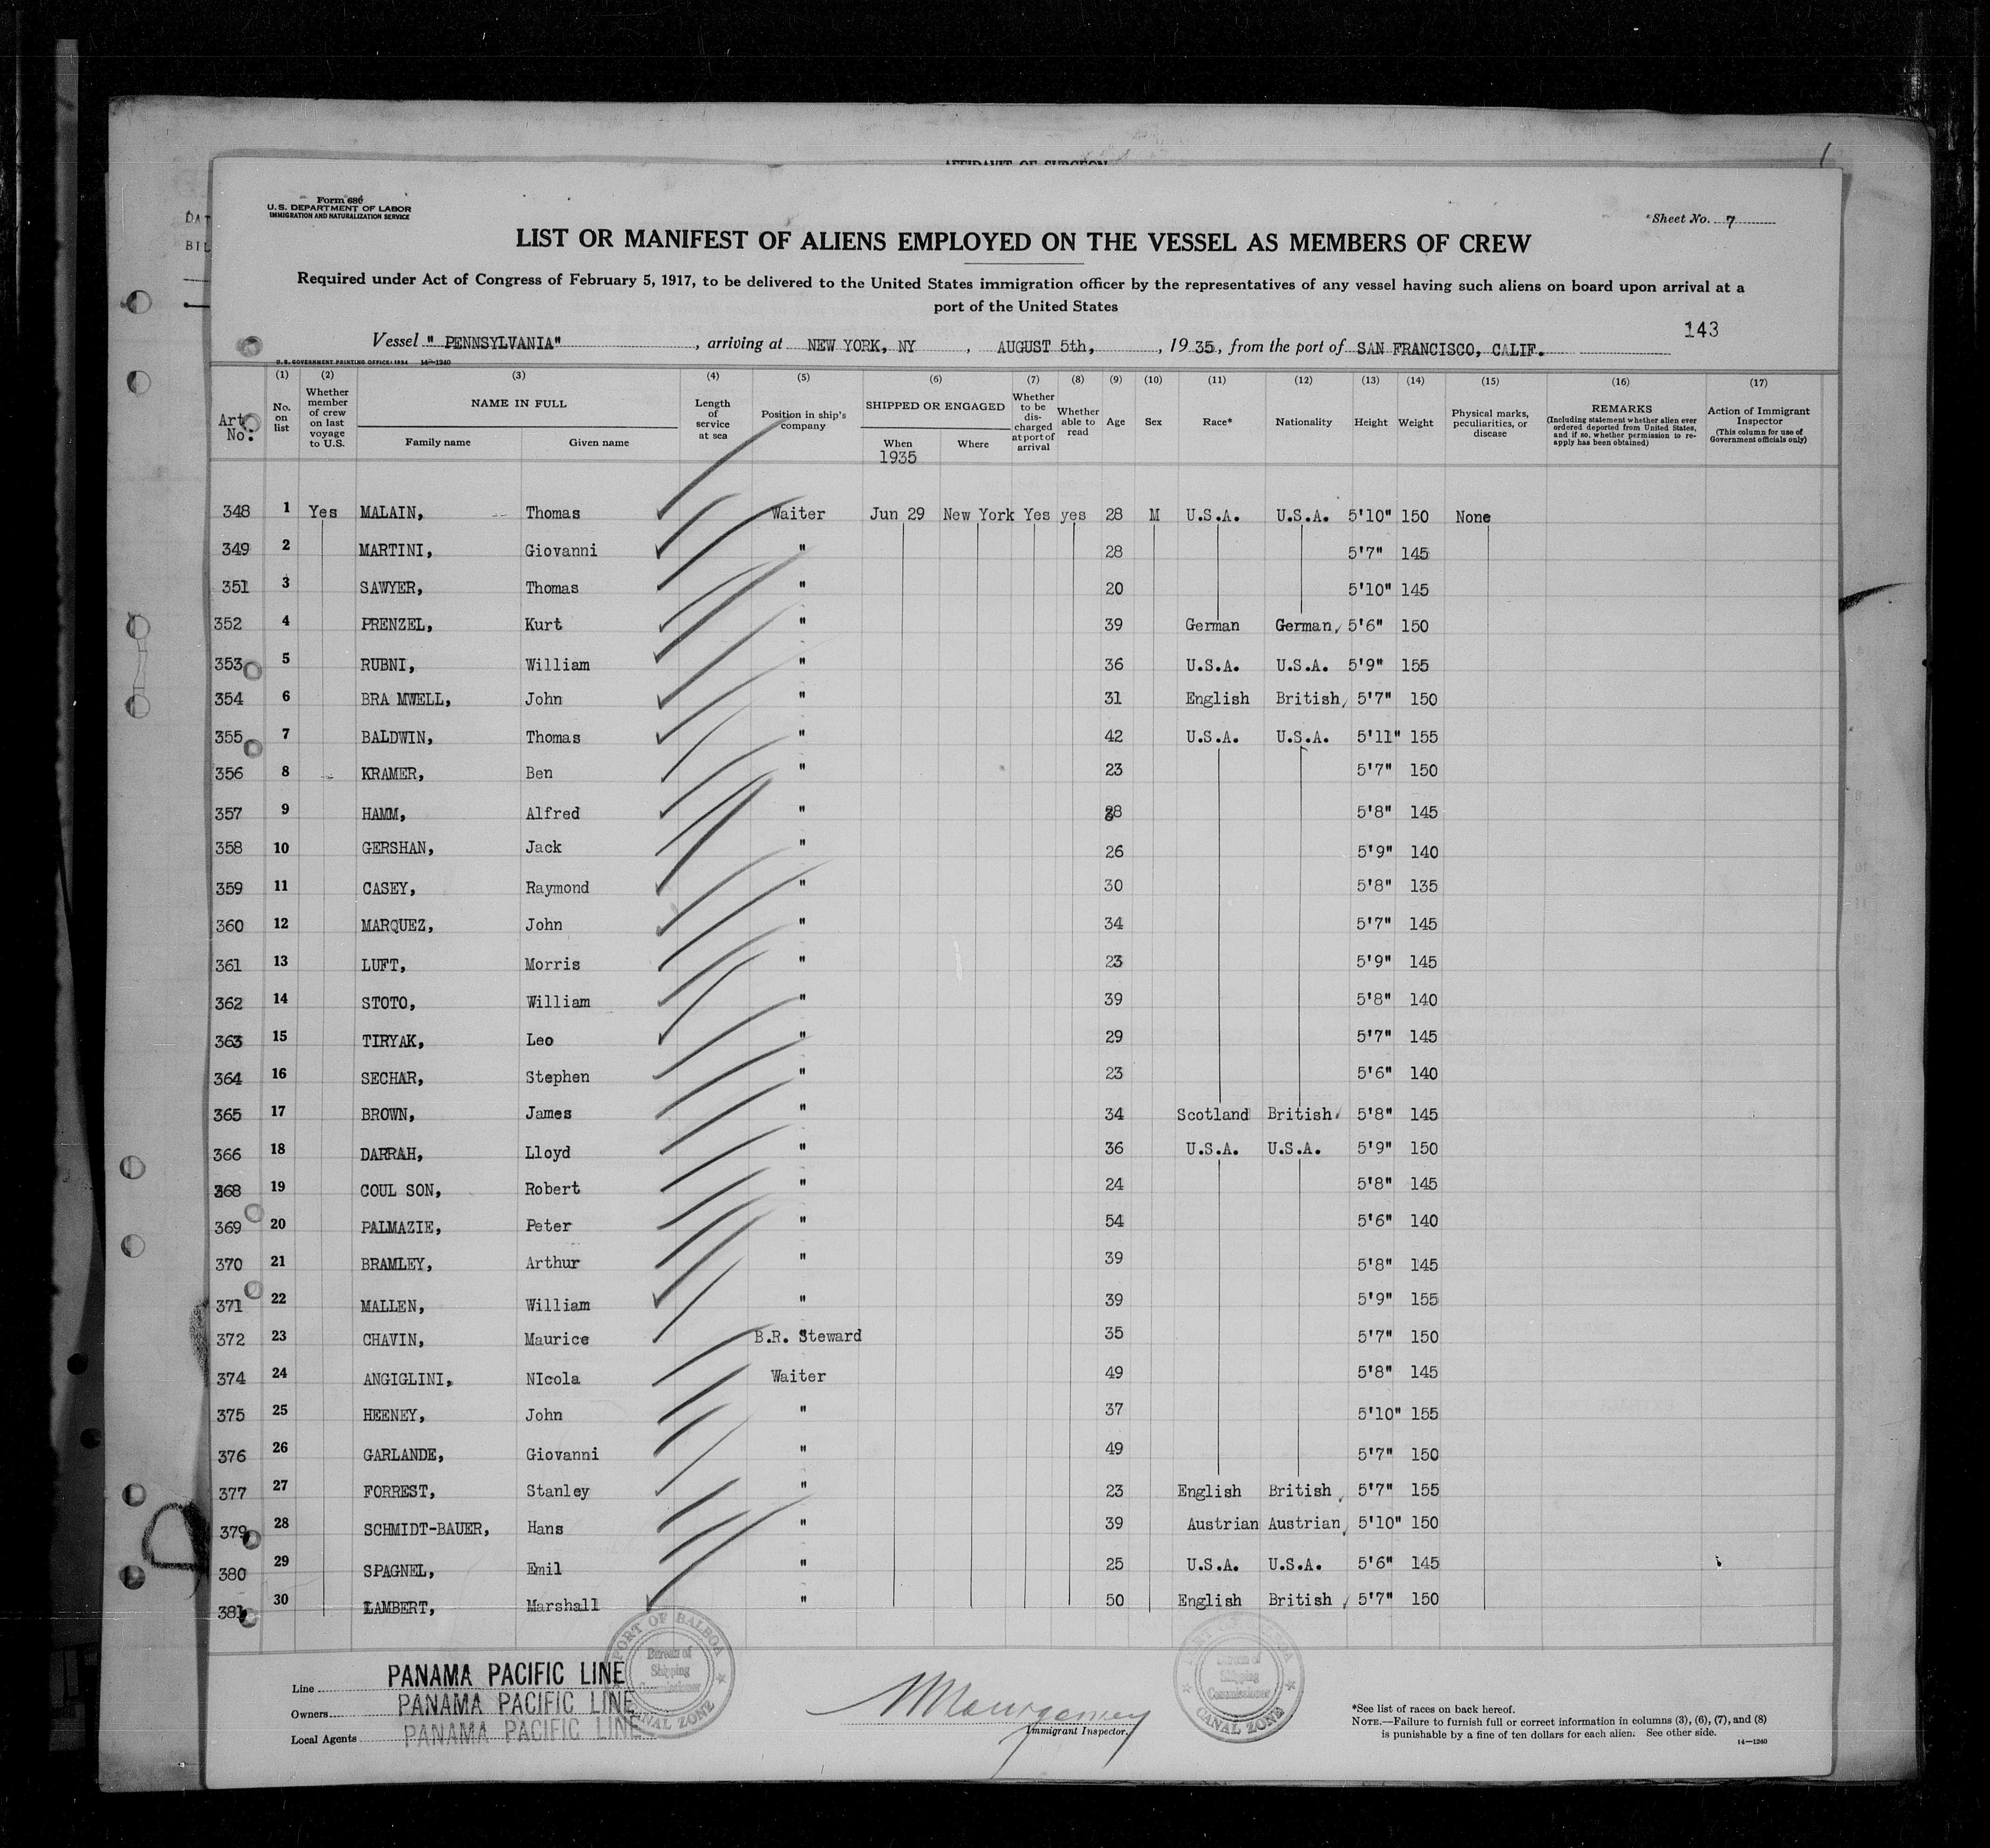 AFFIDAVIT OF SURGEON
Form 686
U.S. DEPARTMENT OF LABOR
IMMIGRATION AND NATURALIZATION SERVICE
Sheet No. 7
LIST OR MANIFEST OF ALIENS EMPLOYED ON THE VESSEL AS MEMBERS OF CREW
Required under Act of Congress of February 5, 1917, to be delivered to the United States immigration officer by the representatives of any vessel having such aliens on board upon arrival at a
port of the United States
143
Vessel "PENNSYLVANIA", arriving at NEW YORK, NY, AUGUST 5th, 1935, from the port of SAN FRANCISCO, CALIF.
U.S. GOVERNMENT PRINTING OFFICE: 1934 14-1240
(1) (2) (3) (4) (5) (6) (7) (8) (9) (10) (11) (12) (13) (14) (15) (16) (17)
Art No. No. on list Whether member of crew on last voyage to U.S. NAME IN FULL Family name Given name Length of service at sea Position in ship's company SHIPPED OR ENGAGED When 1935 Where Whether to be discharged at port of arrival Whether able to read Age Sex Race* Nationality Height Weight Physical marks, peculiarities, or disease REMARKS (Including statement whether alien ever ordered deported from United States, and if so, whether permission to re-apply has been obtained) Action of Immigrant Inspector (This column for use of Government officials only)
348 1 Yes MALAIN, Thomas Waiter Jun 29 New York Yes yes 28 M U.S.A. U.S.A. 5'10" 150 None
349 2 MARTINI, Giovanni " 28 5'7" 145
351 3 SAWYER, Thomas " 20 5'10" 145
352 4 PRENZEL, Kurt " 39 German German, 5'6" 150
353 5 RUBNI, William " 36 U.S.A. U.S.A. 5'9" 155
354 6 BRA MWELL, John " 31 English British, 5'7" 150
355 7 BALDWIN, Thomas " 42 U.S.A. U.S.A. 5'11" 155
356 8 KRAMER, Ben " 23 5'7" 150
357 9 HAMM, Alfred " 5'8" 145
358 10 GERSHAN, Jack " 26 5'9" 140
359 11 CASEY, Raymond " 30 5'8" 135
360 12 MARQUEZ, John " 34 5'7" 145
361 13 LUFT, Morris " 23 5'9" 145
362 14 STOTO, William " 39 5'8" 140
363 15 TIRYAK, Leo " 29 5'7" 145
364 16 SECHAR, Stephen " 23 5'6" 140
365 17 BROWN, James " 34 Scotland British, 5'8" 145
366 18 DARRAH, Lloyd " 36 U.S.A. U.S.A. 5'9" 150
368 19 COUL SON, Robert " 24 5'8" 145
369 20 PALMAZIE, Peter " 54 5'6" 140
370 21 BRAMLEY, Arthur " 39 5'8" 145
371 22 MALLEN, William " 39 5'9" 155
372 23 CHAVIN, Maurice B.R. Steward 35 5'7" 150
374 24 ANGIGLINI, NIcola Waiter 49 5'8" 145
375 25 HEENEY, John " 37 5'10" 155
376 26 GARLANDE, Giovanni " 49 5'7" 150
377 27 FORREST, Stanley " 23 English British, 5'7" 155
379 28 SCHMIDT-BAUER, Hans " 39 Austrian Austrian, 5'10" 150
380 29 SPAGNEL, Emil " 25 U.S.A. U.S.A. 5'6" 145
381 30 LAMBERT, Marshall " 50 English British, 5'7" 150
Line PANAMA PACIFIC LINE
Owners PANAMA PACIFIC LINE
Local Agents PANAMA PACIFIC LINE
PORT OF BALBOA Bureau of Shipping Commissioner CANAL ZONE
Immigrant Inspector.
PORT OF BALBOA Bureau of Shipping Commissioner CANAL ZONE
*See list of races on back hereof.
NOTE.—Failure to furnish full or correct information in columns (3), (6), (7), and (8)
is punishable by a fine of ten dollars for each alien. See other side.
14-1240